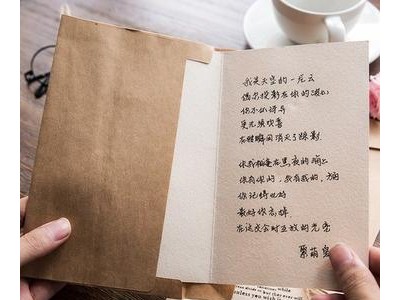 我是天空的一片云
偶尔投影在你的波心
你不必讶异
更无须欢喜
在转瞬间消灭了踪影
你我相逢在黑夜的海上
你有你的，我有我的，方向
你记得也好
最好你忘掉
在这交会时互放的光亮
while
unless you